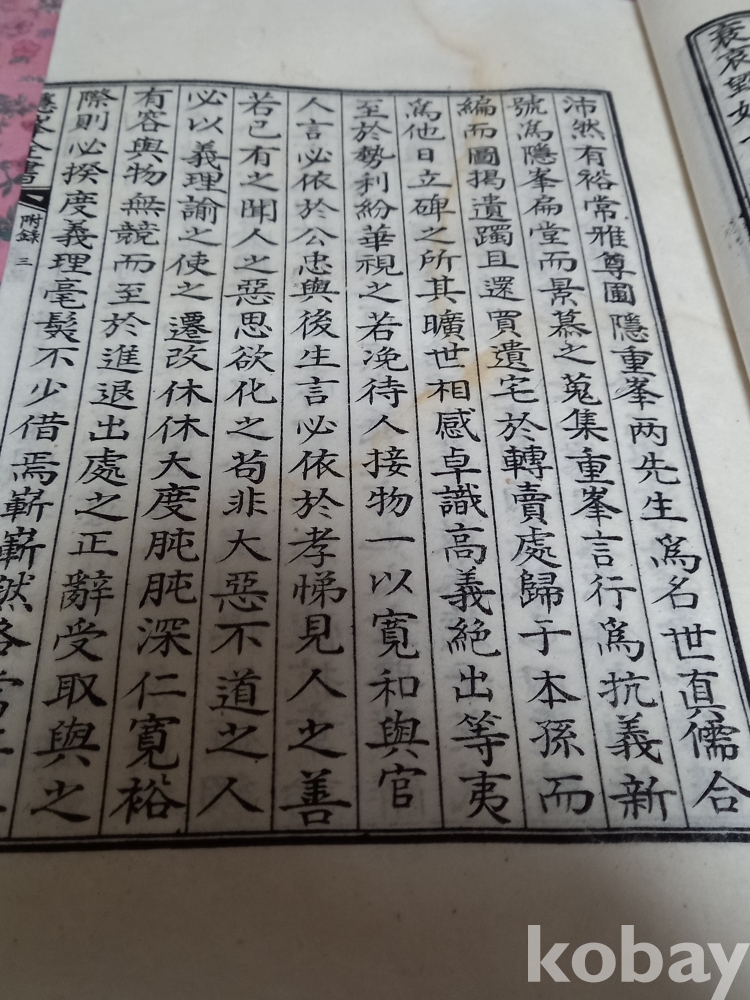 沛然有裕常雅尊圃隱重峯兩先生爲名世真儒合
號爲隱峯扁堂而景慕之蒐集重峯言行爲抗義新
編而圖揭遺躅且還買遺宅於轉賣處歸于本孫而
爲他日立碑之所其曠世相感卓識高義絶出等夷
至於勢利紛華視之若凂待人接物一以寬和與官
人言必依於公忠與後生言必依於孝悌見人之善
若己有之聞人之惡思欲化之苟非大惡不道之人
必以義理諭之使之遷改休休大度肫肫深仁寬裕
有容與物無競而至於進退出處之正辭受取與之
際則必揆度義理毫髮不少借焉嶄嶄然
峯全書 附錄 三
kobay